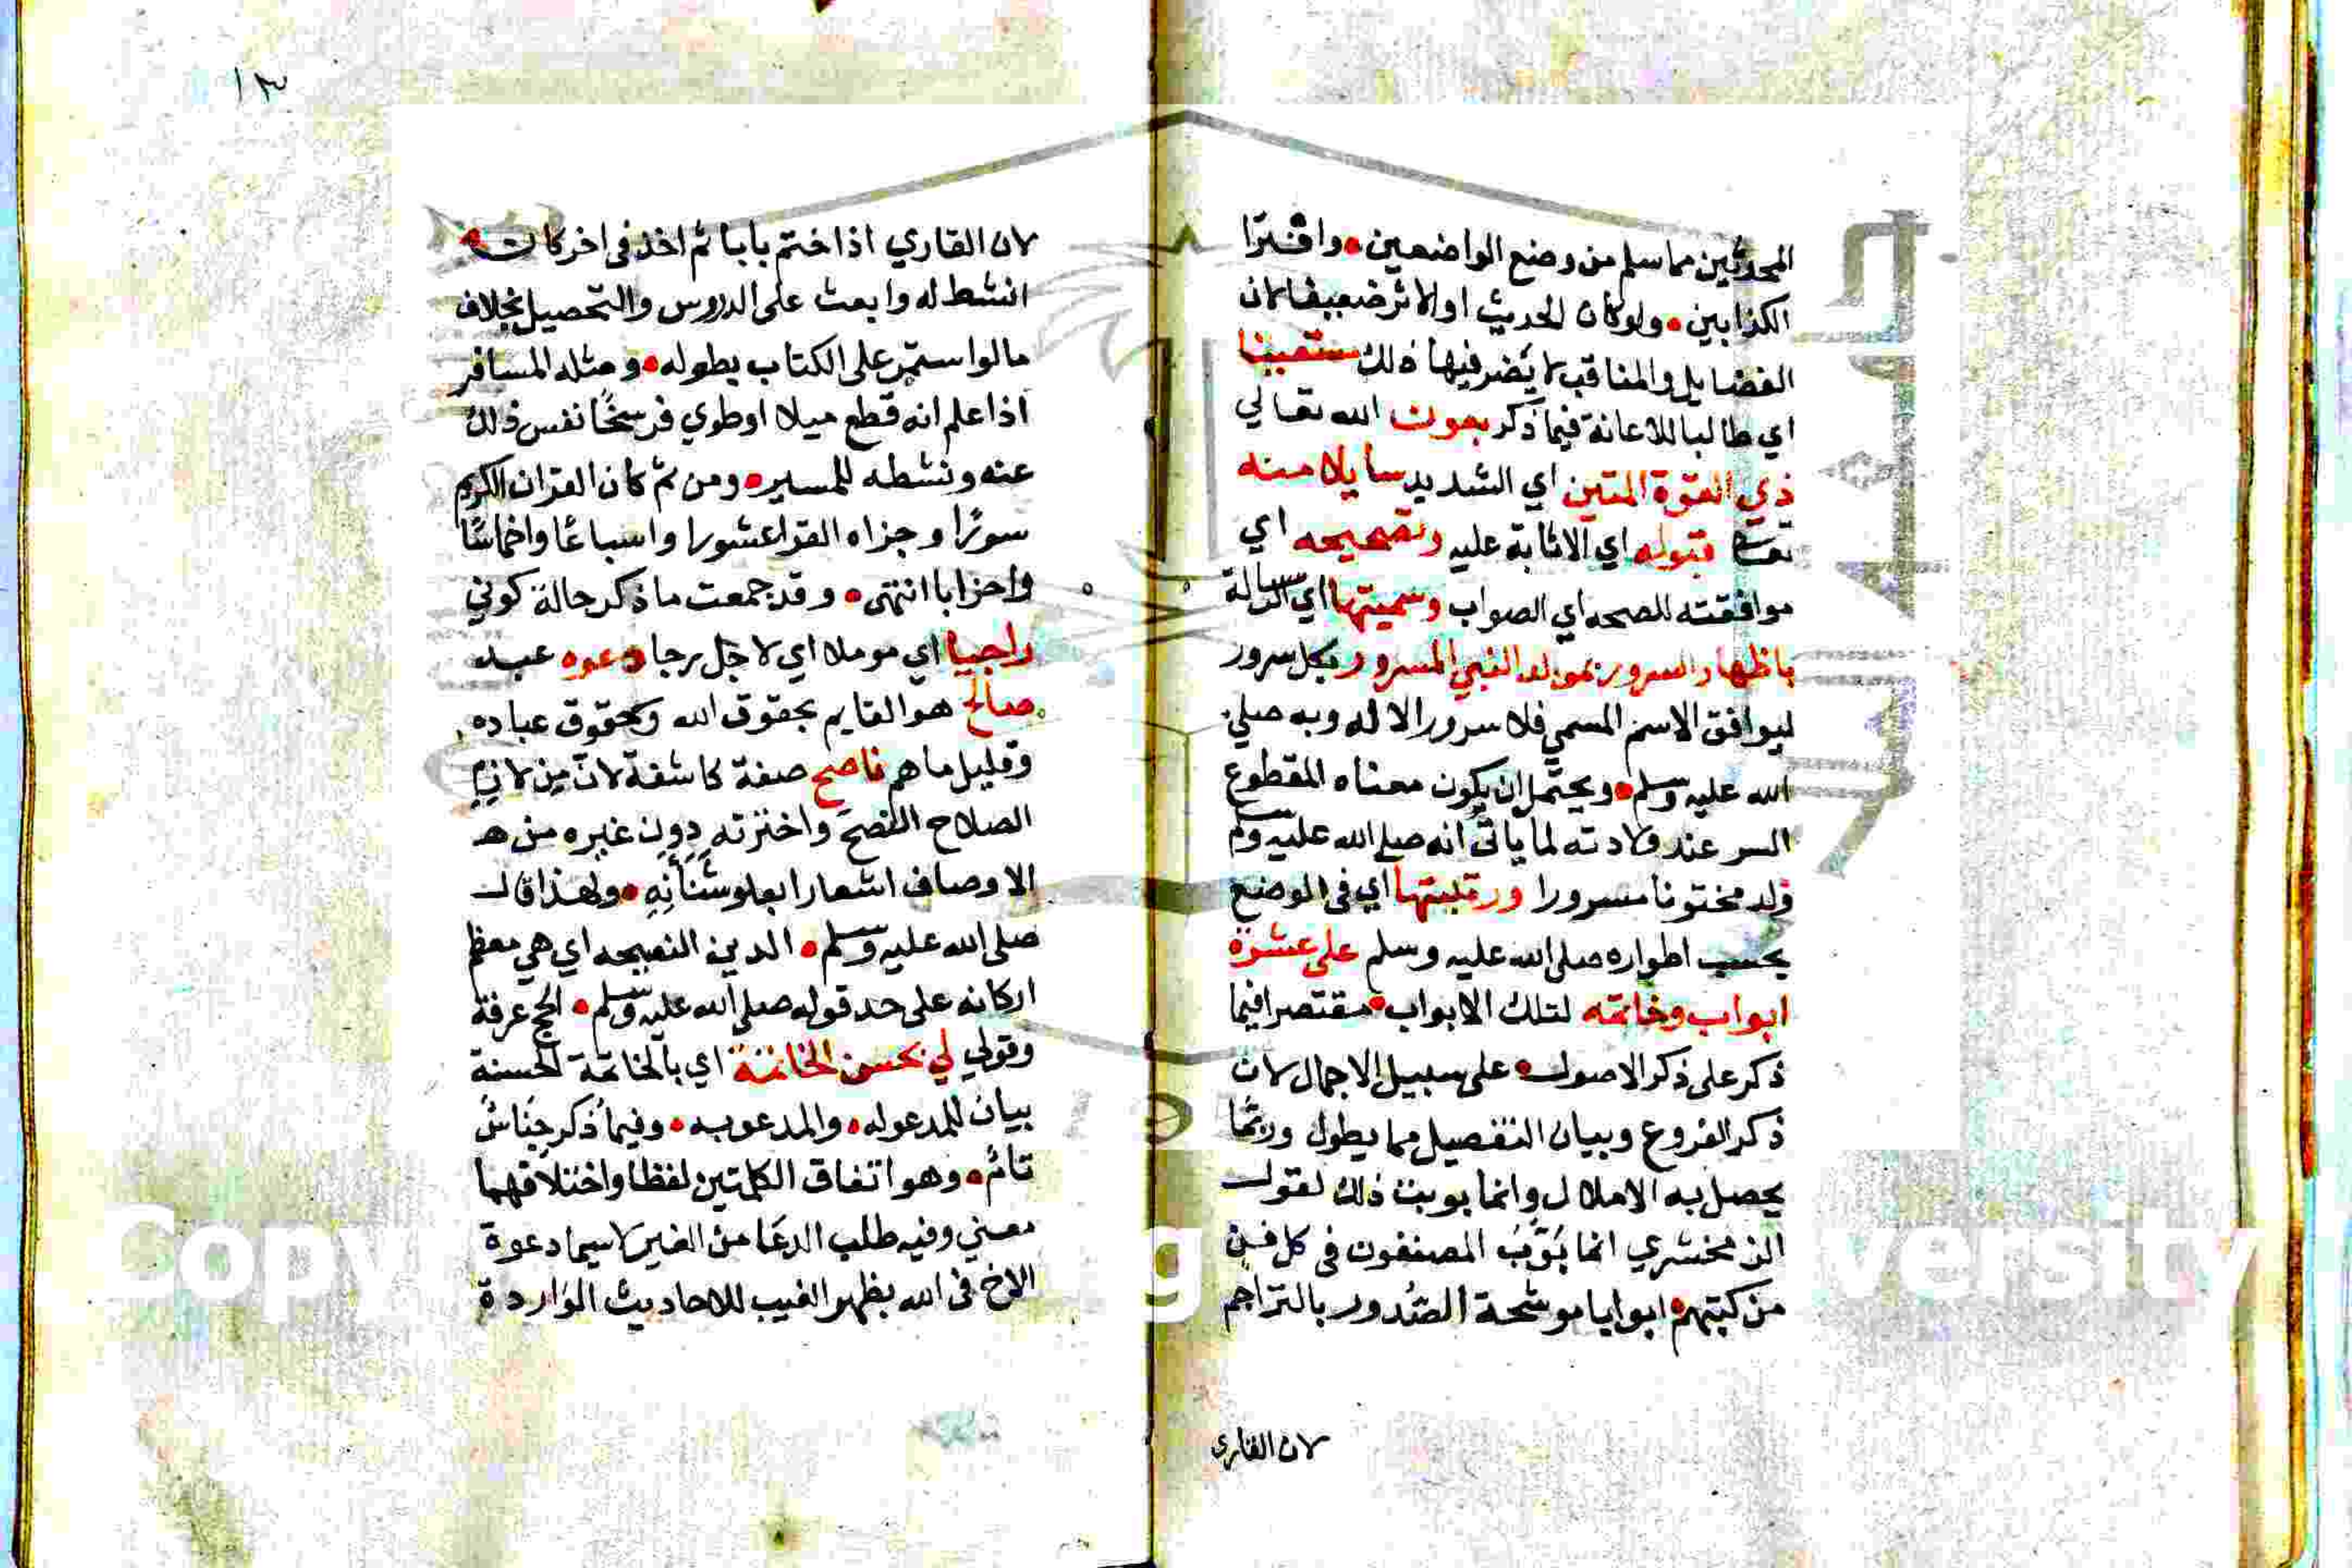 المحدثين مما سلم من وضع الواضعين • وافترا
الكذابين • ولو كان الحديث او الاثر ضعيفا لان
الفضايل والمناقب لا يضر فيها ذلك مستعينا
اي طالبا للاعانة فيما ذكر بعون الله تعالي
ذي القوة المتين اي الشديد سايلا منه
قبوله اي الاثابة عليه وتصحيحه اي
موافقته للصحه اي الصواب وسميتها اي الرسالة
باظهار السرور بمولد النبي المسرور بكل سرور
ليوافق الاسم المسمي فلا سرور الا له وبه صلي
الله عليه وسلم • ويحتمل ان يكون معناه المقطوع
السر عند ولادته لما ياتي انه صلى الله عليه وسلم
ولد مختونا مسرورا ورتبتها اي في الوضع
بحسب اطواره صلى الله عليه وسلم على عشرة
ابواب وخاتمه لتلك الابواب • مقتصرا فيما
ذكر على ذكر الاصول • على سبيل الاجمال لان
ذكر الفروع وبيان التفصيل مما يطول وربما
يحصل به الاملال وانما بوبت ذلك لقول
الزمخشري انما بوّب المصنفون في كل فن
من كتبهم • ابوابا موشحة الصدور بالتراجم
لان القاري
١٣
لان القاري اذا ختم بابا ثم اخذ في اخر كان
انشط له وابعث على الدروس والتحصيل بخلاف
ما لو استمر على الكتاب بطوله • ومثله المسافر
اذا علم انه قطع ميلا او طوي فرسخًا نفس ذلك
عنه ونشطه للمسير • ومن ثم كان القران الكريم
سورًا وجزاه القرا عشورا واسباعًا واخماسًا
واحزابا انتهى • وقد جمعت ما ذكر حالة كوني
راجيا اي موملا اي لاجل رجا دعوه عبد
صالح هو القايم بحقوق الله وبحقوق عباده
وقليل ما هم ناصح صفة كاشفة لان من لازم
الصلاح النصح واخترته دون غيره من هـ
الاوصاف اشعارا بعلو شانه • ولهذا قال
صلى الله عليه وسلم • الدين النصيحه اي هي معظم
اركانه على حد قوله صلى الله عليه وسلم • الحج عرفة
وقولي لي بحسن الخاتمة اي بالخاتمة الحسنة
بيان للمدعو له • والمدعو به • وفيما ذكر جناس
تام • وهو اتفاق الكلمتين لفظا واختلافهما
معني وفيه طلب الدعا من الغير لاسيما دعوة
الاخ في الله بظهر الغيب للاحاديث الواردة